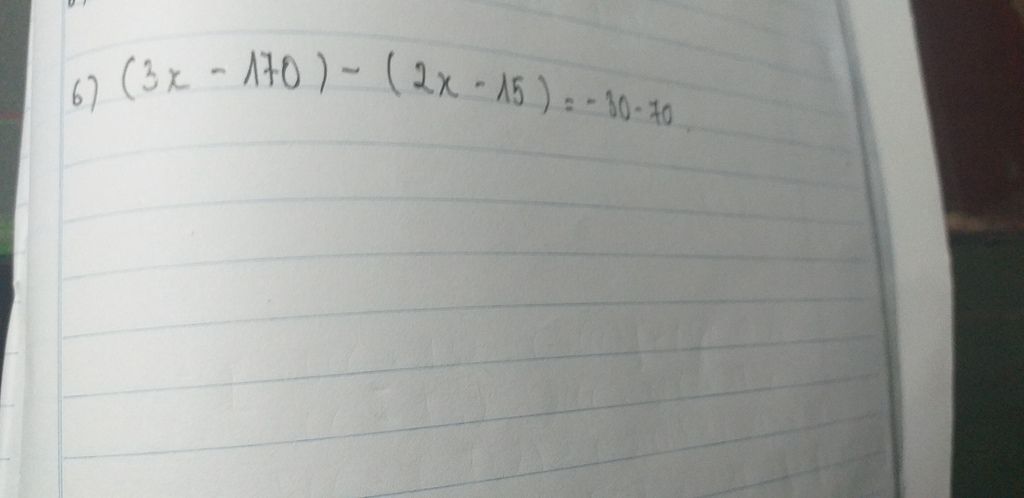 6) (3x - 170) - (2x - 15) = - 30 - 70